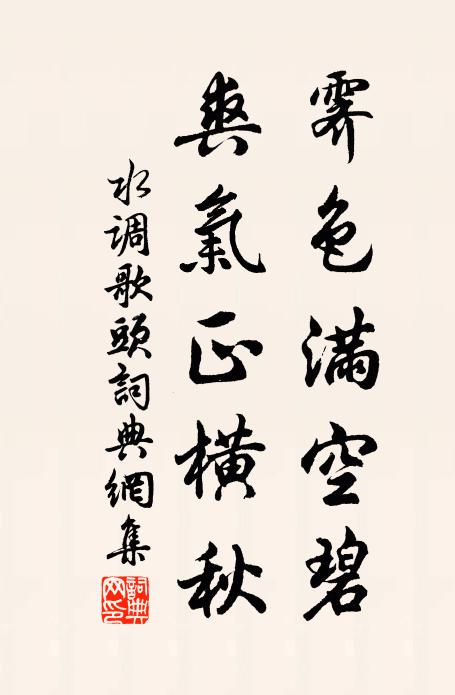 霽色滿空碧
爽氣正橫秋
水调歌頭詞典網集
詞典網印